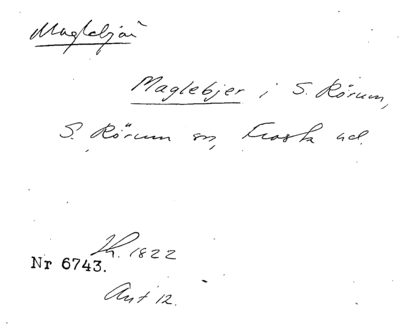 Maglebjär
Maglebjer i S. Rörum,
S. Rörum sn, Frosta hd.
Lh. 1822
Nr 6743.
Ant 12.